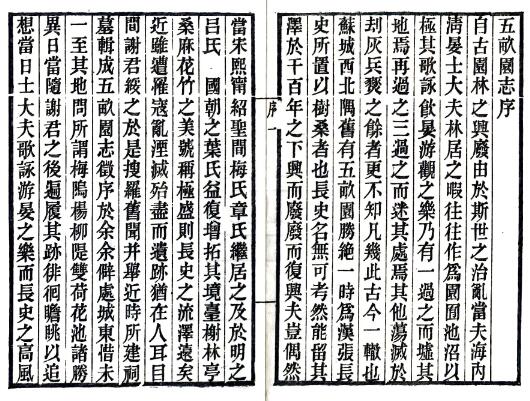 五畝園志序
自古園林之興廢由於斯世之治亂當夫海內
清晏士大夫林居之暇往往作爲園囿池沼以
極其歌詠飲晏游觀之樂乃有一過之而墟其
地焉再過之三過之而迷其處焉其他蕩滅於
刦灰兵燹之餘者更不知凡幾此古今一轍也
蘇城西北隅舊有五畝園勝絕一時爲漢張長
史所置以樹桑者也長史名無可考然能留其
澤於千百年之下興而廢廢而復興夫豈偶然
序 一
當宋熙甯紹聖間梅氏章氏繼居之及於明之
呂氏 國朝之葉氏益復增拓其境臺榭林亭
桑麻花竹之美號稱極盛則長史之流澤遠矣
近雖遭罹寇亂湮滅殆盡而遺跡猶在人耳目
間謝君綏之於是搜羅舊聞并舉近時所建祠
墓輯成五畝園志徵序於余余僻處城東惜未
一至其地問所謂梅隖楊柳隄雙荷花池諸勝
異日當隨謝君之後遍履其跡徘徊瞻眺以追
想當日士大夫歌詠游晏之樂而長史之高風